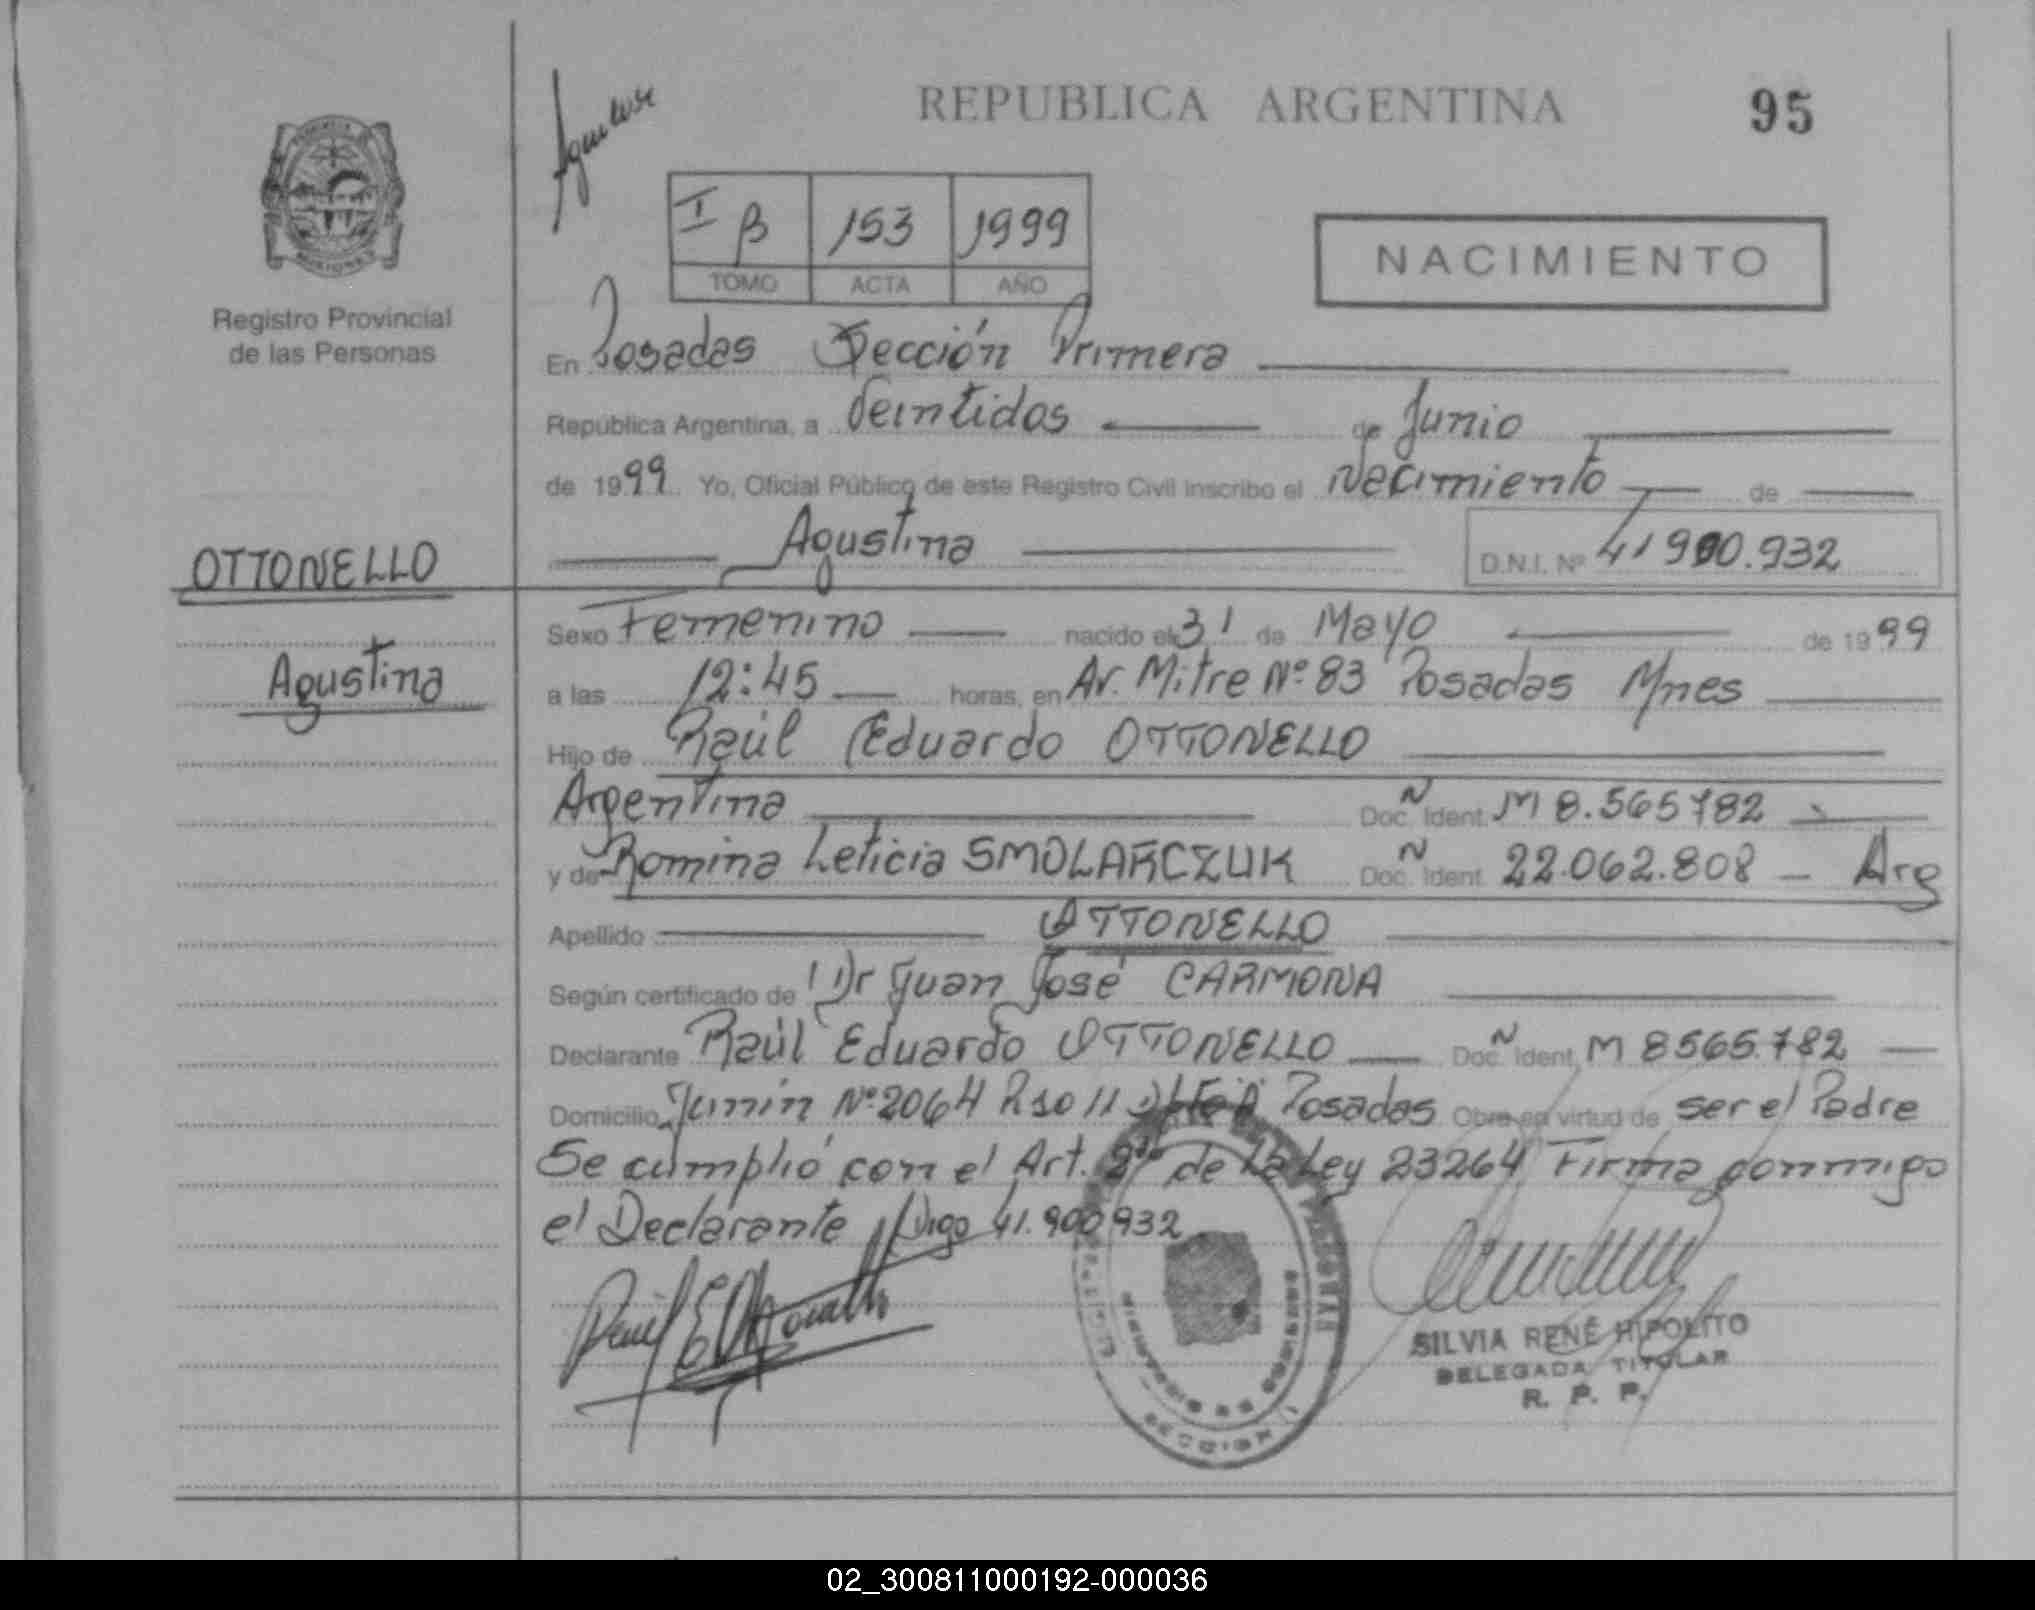 REPUBLICA ARGENTINA
95
I B 153 1999
TOMO ACTA AÑO
NACIMIENTO
Registro Provincial
de las Personas
En Posadas Sección Primera
República Argentina, a Veintidos de Junio
de 1999 Yo, Oficial Público de este Registro Civil inscribo el Nacimiento de
Agustina D.N.I. Nº 41900.932
OTTONELLO
Agustina
Sexo Femenino nacido el 31 de Mayo de 1999
a las 12:45 horas, en Av. Mitre Nº 83 Posadas Mnes
Hijo de Raúl Eduardo OTTONELLO
Argentina Doc. Ident. M 8.565782
y de Romina Leticia SMOLARCZUK Doc. Ident. 22.062.808 Arg
Apellido OTTONELLO
Según certificado de Dr Juan José CARMONA
Declarante Raúl Eduardo OTTONELLO Doc. Ident. M 8565.782
Domicilio Junin Nº 2064 Posadas Obra en virtud de ser el Padre
Se cumplió con el Art. de La Ley 23264 Firma conmigo
el Declarante // Digo 41.900932
SILVIA RENÉ HIPOLITO
DELEGADA TITULAR
R. P. P.
SECCION
02_300811000192-000036